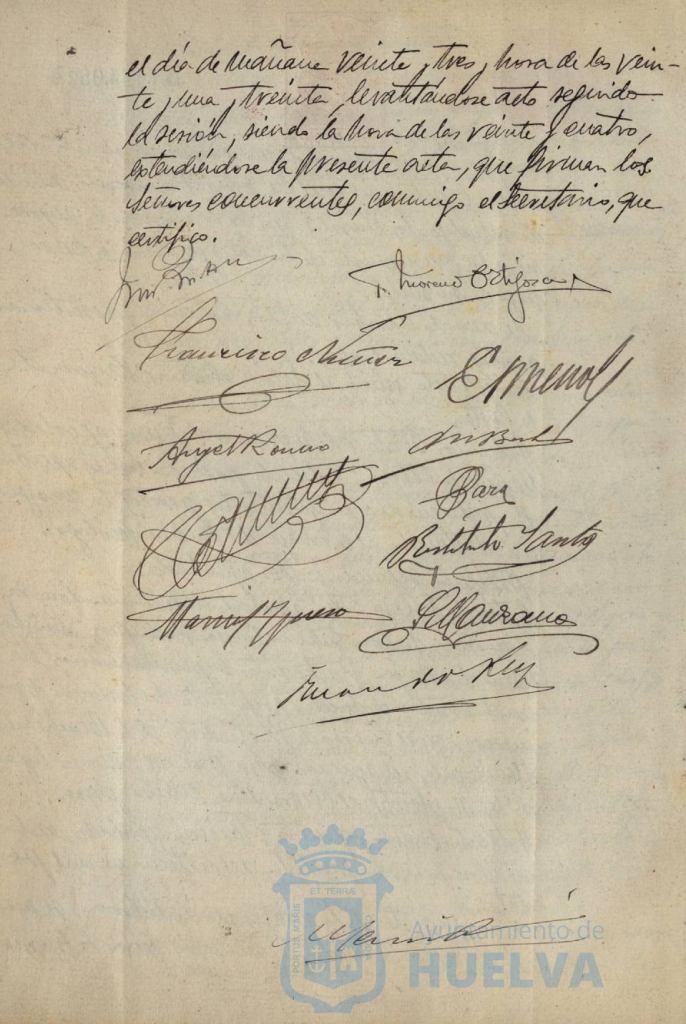 el día de mañana veinte y tres, hora de las vein-
te y una y treinta, levantándose acto seguido
la sesión, siendo la hora de las veinte y cuatro,
extendiéndose la presente acta, que firman los
señores concurrentes, conmigo el Secretario, que
certifico.
F. Moreno Ortigosa
Francisco Núñez
Angel Romero
Para
Restituto Santos
Manuel
Manzano
PORTUS MARIS
ET TERRÆ
Ayuntamiento de
HUELVA